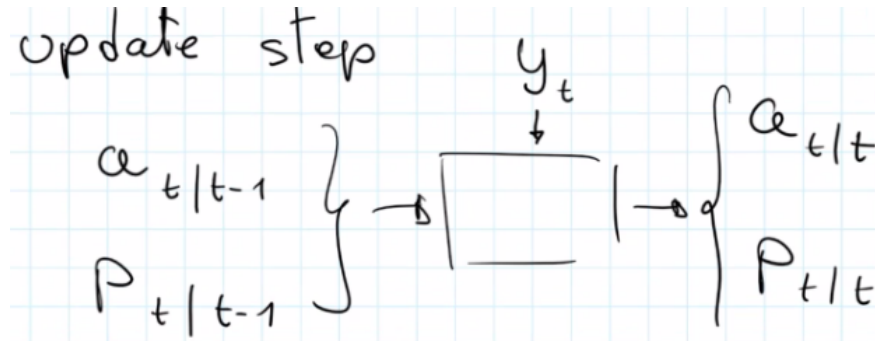 update step
y_t
a_{t|t-1}
P_{t|t-1}
a_{t|t}
P_{t|t}